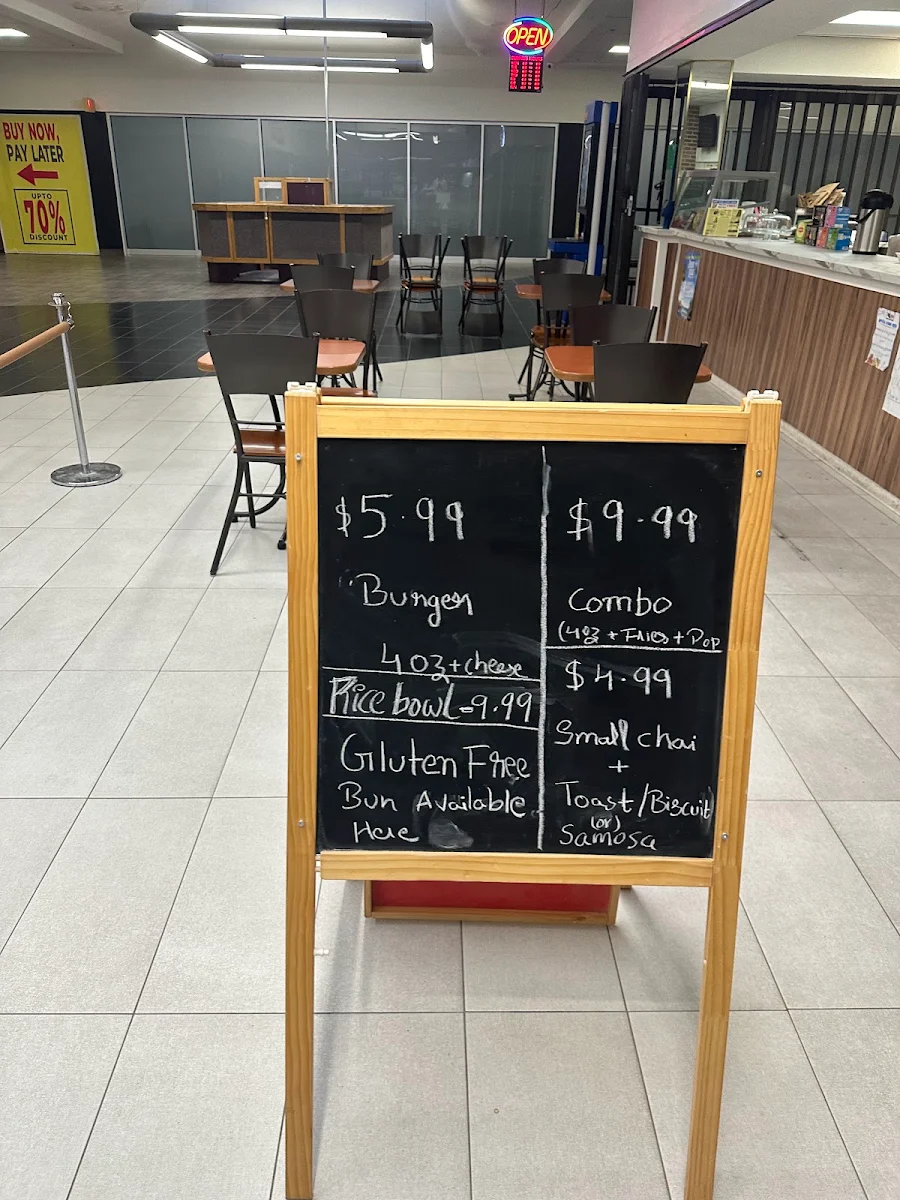 OPEN
BUY NOW,
PAY LATER
UPTO
70%
DISCOUNT
$5.99
Burger
4oz+cheese
Rice bowl-9.99
Gluten Free
Bun Available
Here
$9.99
Combo
(4oz + Fries + Pop
$4.99
Small chai
+
Toast/Biscuit
(or)
Samosa